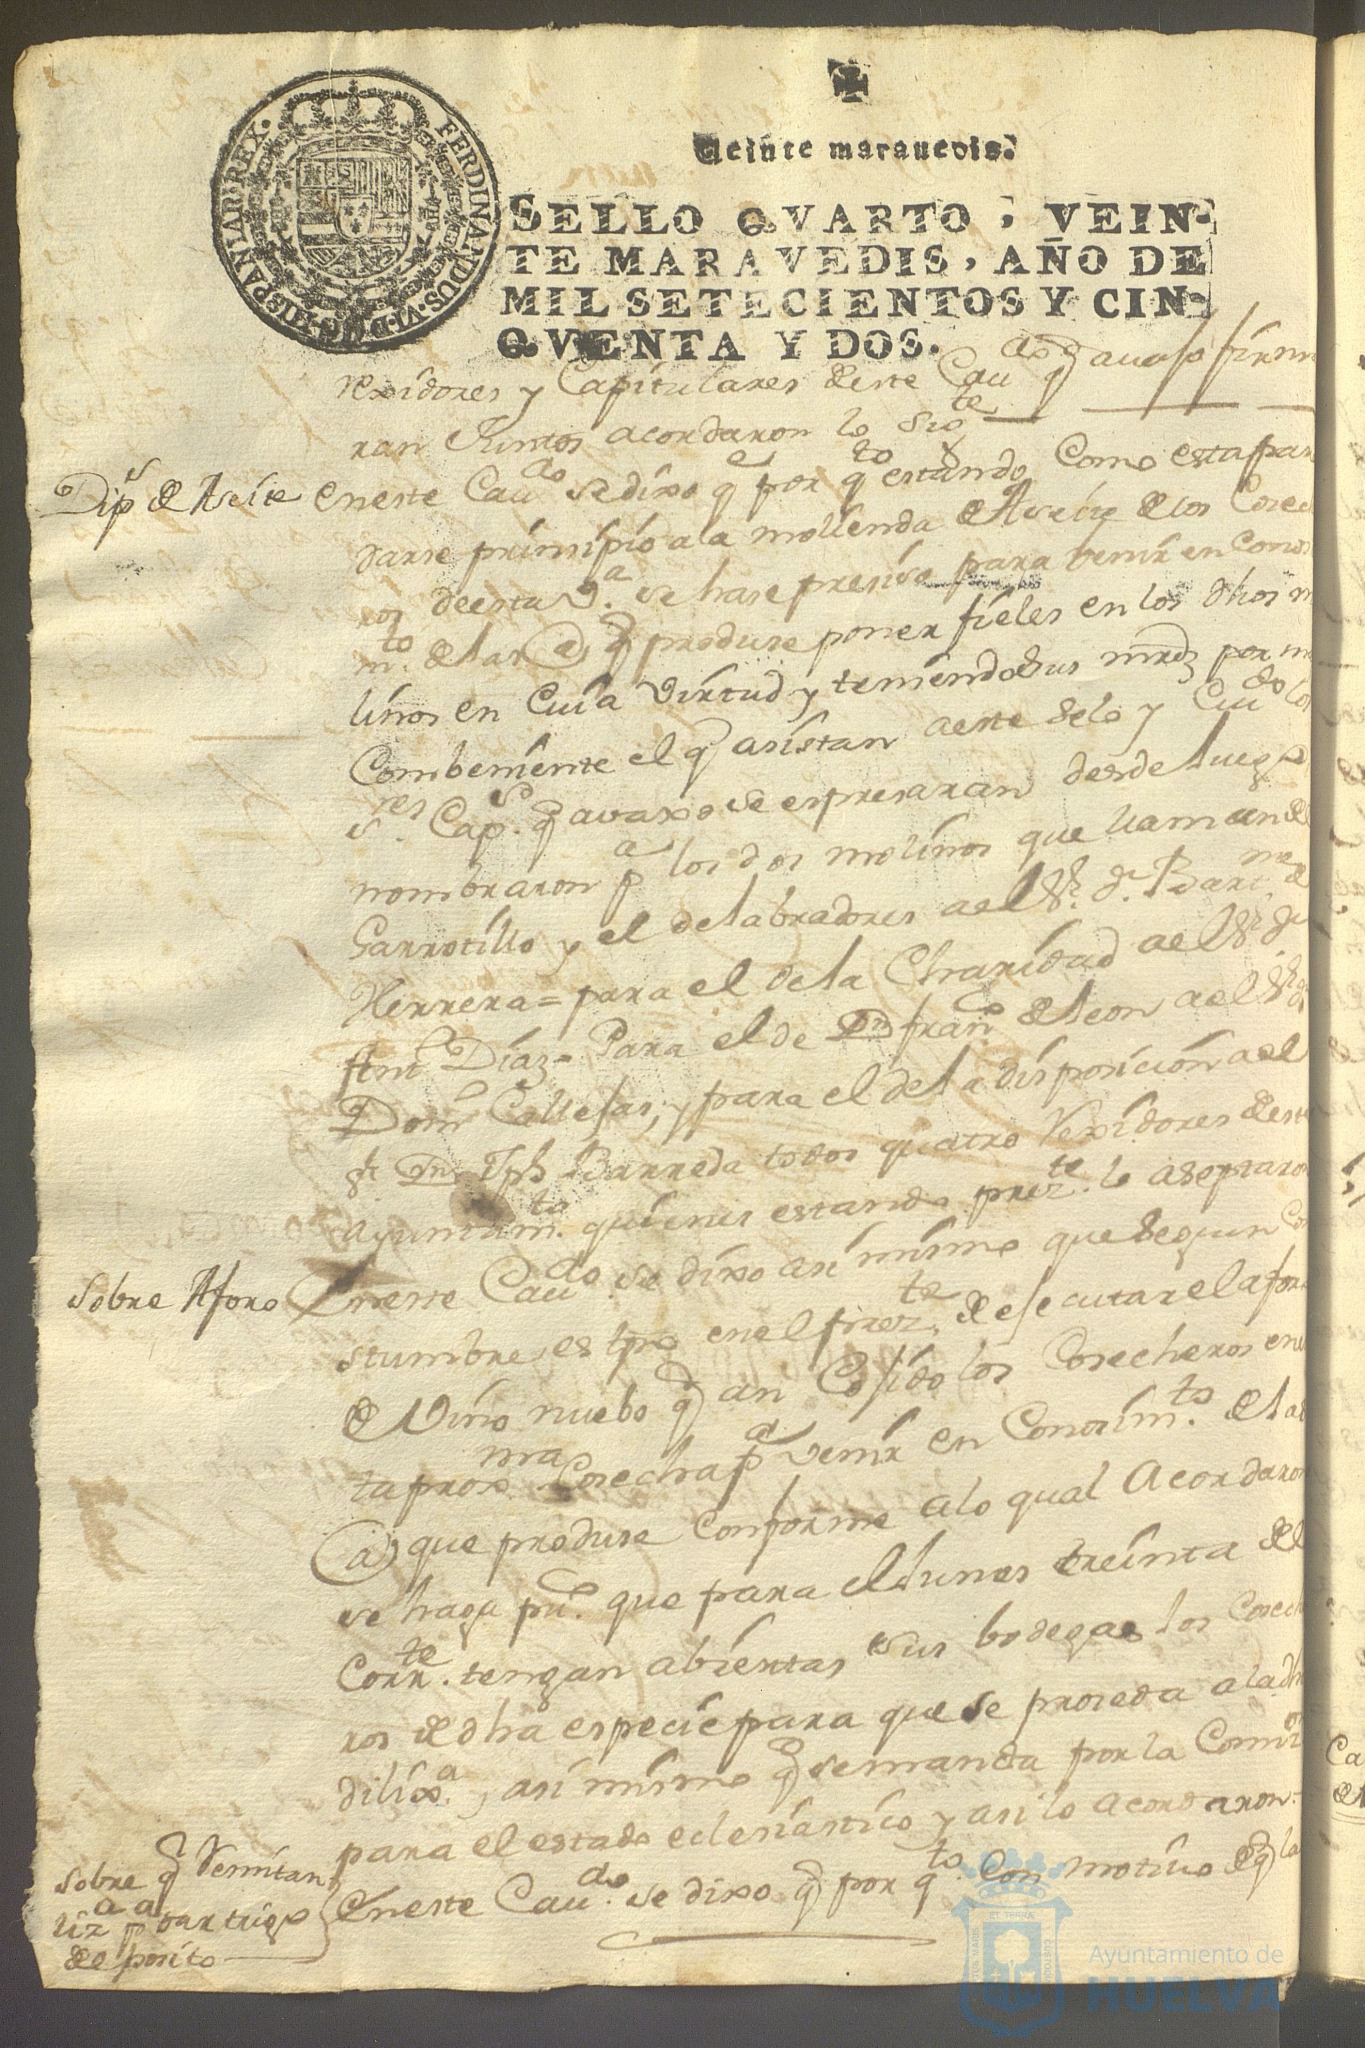 FERDINANDUS·VI·D·G·HISPANIAR·REX·
Veinte maravedis.
SELLO QVARTO, VEIN-
TE MARAVEDIS, AÑO DE
MIL SETECIENTOS Y CIN-
QVENTA Y DOS.
rexidores y Capitulares deste Cau.do q avaxo firma
ran Juntos acordaron lo sig.te
Dip.s de Aseite
en este Cau.do se dixo q.e por q.to estando Como esta para
darse prinsipio ala molienda de Aseite de los Cosech
ros de esta V.a se hase presiso para venir en Conos
m.to de las @ q produse poner fieles en los dhos m
linos en Cuia virtud y teniendo sus mrds por m
Combeniente el q asistan a este selo y Cui.do los
s.res Cap.s q avaxo se espresaran desde luego
nombraron p.a los dos molinos que llaman de
Garrotillo y el de labradores a el S.r d.n Bart.me de
Herrera = para el de la Charidad a el S.r d.n
Ant.o Díaz = Para el de D.n Fran.co de leon a el S.r d.n
Dom.o Callejas, y para el de la disposición a el
S.r D.n Jph Barreda todos quatro Rexidores de este
ayuntam.to quienes estando prez.te lo aseptaron
Sobre Aforo
En este Cau.do se dixo asi mismo que segun Co
stumbre es tpo en el prez.te de ejecutar el afor
de Vino nuebo q an Cojido los Cosecheros en es
ta prox.ma Cosecha p.a venir en Conosim.to de las
@ que produse Conforme alo qual Acordaron
se haga pu.co que para el lunes treinta del
Corr.te tengan abiertas sus bodegas los Cosech
ros de dha especie para que se proseda a la dh
dilix.a, asi mismo q se manda por la Comu
para el estado eclesiastico y asi lo acordaron.
Sobre q Remitan
liz.a p.a dar trigo
del posito
En este Cau.do se dixo q por q.to Con motivo de q la
Ca
Ayuntamiento de
HUELVA